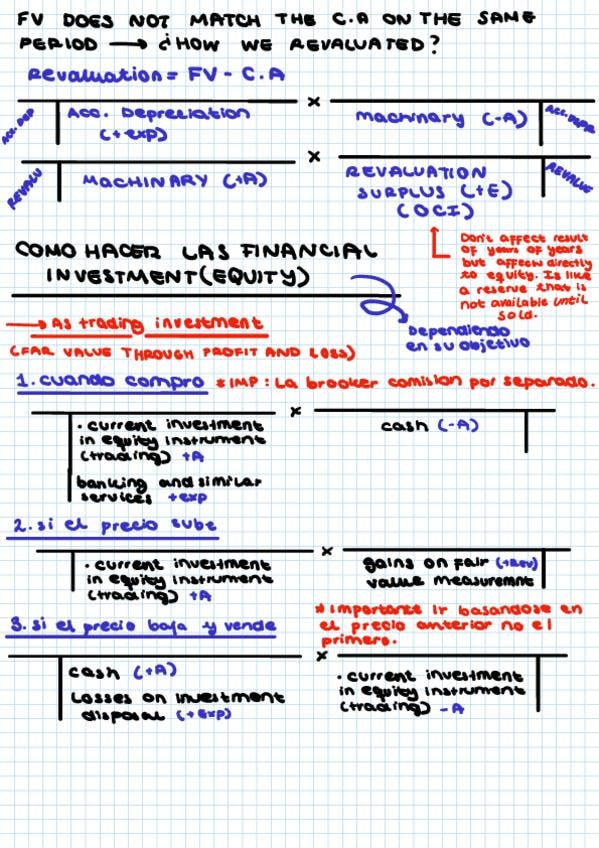 FV DOES NOT MATCH THE C.A ON THE SAME
PERIOD → ¿HOW WE REVALUATED?
Revaluation = FV - C.A
ACC. DEP
Acc. Depreciation
(+exp)
x
machinary (-A)
ACC. DEPR
REVALU
MACHINARY (+A)
x
REVALUATION
SURPLUS (+E)
(OCI)
REVALUE
Don't affect result
of years of years
but affects directly
to equity. Is like
a reserve that is
not available until
sold.
COMO HACER LAS FINANCIAL
INVESTMENT (EQUITY)
Dependiendo
en su objetivo
→ As trading investment
(FAR VALUE THROUGH PROFIT AND LOSS)
1. cuando compro * IMP: La brooker comision por separado.
x
· current investment
in equity instrument
(trading) +A
banking and similar
services +exp
cash (-A)
2. si el precio sube
x
· current investment
in equity instrument
(trading) +A
gains on fair (+Rev)
value measuremnt
* importante ir basandose en
el precio anterior no el
primero.
3. si el precio baja y vende
x
cash (+A)
Losses on investment
disposal (+exp)
· current investment
in equity instrument
(trading) -A